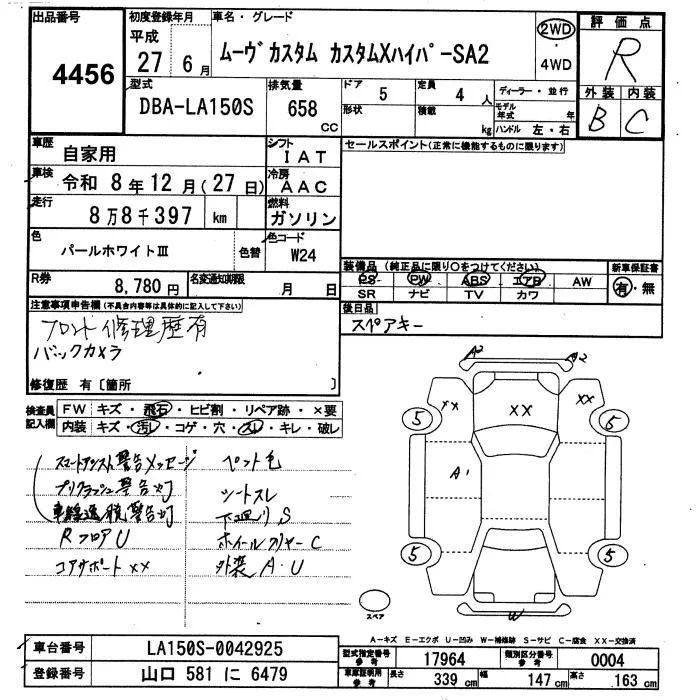 出品番号
4456
初度登録年月
平成
27 6月
車名・グレード
ムーヴカスタム カスタムXハイパーSA2
2WD
4WD
評価点
R
外装 内装
B C
型式
DBA-LA150S
排気量
658 CC
ドア 5
形状
定員 4 人
積載 kg
ディーラー・並行
モデル年式 年
ハンドル 左・右
車歴
自家用
シフト
IAT
セールスポイント(正常に機能するものに限ります)
車検
令和 8年12月(27日)
冷房
AAC
走行
8万8千397 km
燃料
ガソリン
色
パールホワイトⅢ
色替
色コード
W24
R券
8,780円
名変通知期限
月 日
装備品(純正品に限り○をつけてください)
PS PW ABS エアB AW
SR ナビ TV カワ
新車保証書
有・無
後日品
スペアキー
注意事項申告欄(不具合内容等は具体的に記入して下さい)
フロント修理歴有
バックカメラ
修復歴 有〔箇所 〕
検査員記入欄
FW キズ・飛石・ヒビ割・リペア跡・×要
内装 キズ・汚レ・コゲ・穴・スレ・キレ・破レ
スマートアシスト警告メッセージ
プリクラッシュ警告灯
車線逸脱警告灯
RフロアU
コアサポートXX
ペット毛
シートスレ
下廻りS
ホイールカバーC
外装A・U
A2 A2
XX XX XX
5 5
A1
5 5
W
スペア
A-キズ E-エクボ U-凹み W-補修跡 S-サビ C-腐食 XX-交換済
車台番号
LA150S-0042925
登録番号
山口 581 に 6479
型式指定番号
参考
17964
類別区分番号
参考
0004
車庫証明用
参考
長さ 339 cm
幅 147 cm
高さ 163 cm